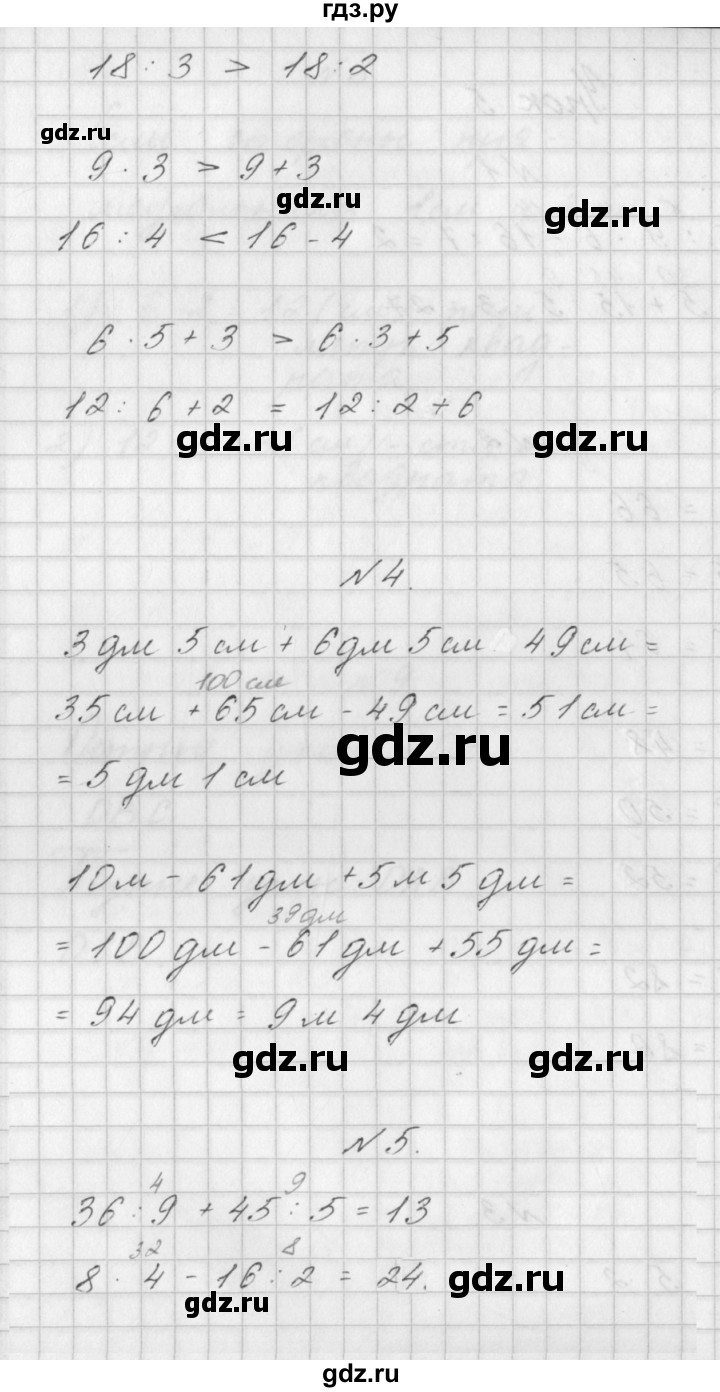 гдз.ру
18 : 3 > 18 : 2
gdz.ru
9 · 3 > 9 + 3
gdz.ru
gdz.ru
16 : 4 < 16 - 4
6 · 5 + 3 > 6 · 3 + 5
12 : 6 + 2 = 12 : 2 + 6
gdz.ru gdz.ru
N 4.
3 дм 5 см + 6 дм 5 см 49 см =
100 см
35 см + 65 см - 49 см = 51 см =
gdz.ru
= 5 дм 1 см
10 м - 61 дм + 5 м 5 дм =
39 дм
= 100 дм - 61 дм + 55 дм =
= 94 дм = 9 м 4 дм
gdz.ru gdz.ru
N 5.
4 9
36 : 9 + 45 : 5 = 13
32 8
8 · 4 - 16 : 2 = 24.
gdz.ru gdz.ru
gdz.ru